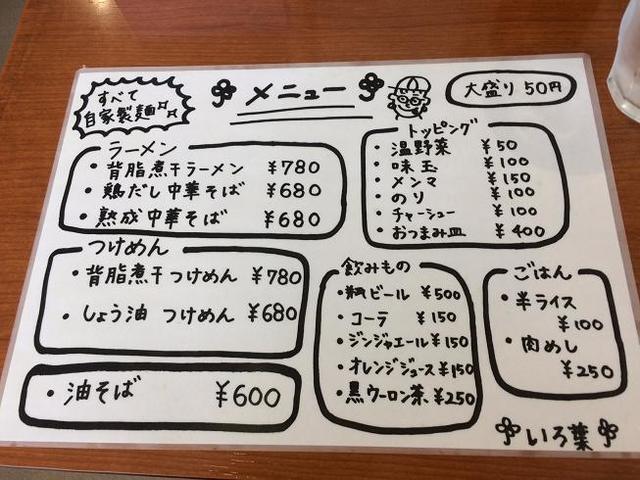 すべて
自家製麺
メニュー
大盛り 50円
ラーメン
・背脂煮干ラーメン ¥780
・鶏だし中華そば ¥680
・熟成中華そば ¥680
つけめん
・背脂煮干つけめん ¥780
・しょう油 つけめん ¥680
・油そば ¥600
トッピング
・温野菜 ¥50
・味玉 ¥100
・メンマ ¥150
・のり ¥100
・チャーシュー ¥100
・おつまみ皿 ¥400
飲みもの
・瓶ビール ¥500
・コーラ ¥150
・ジンジャエール ¥150
・オレンジジュース ¥150
・黒ウーロン茶 ¥250
ごはん
・半ライス
¥100
・肉めし
¥250
いろ葉